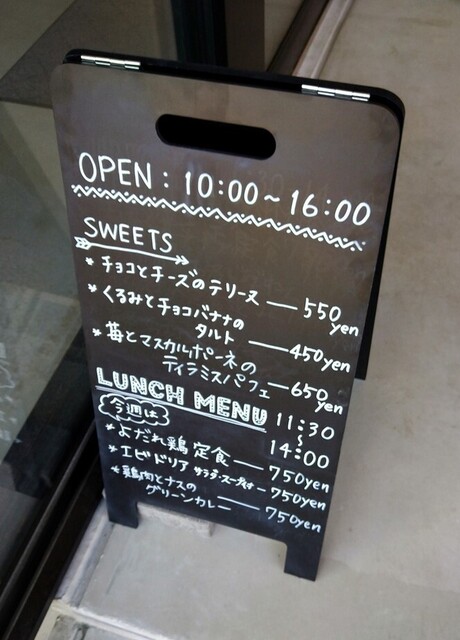 OPEN : 10:00~16:00
SWEETS
* チョコとチーズのテリーヌ — 550yen
* くるみとチョコバナナの
タルト — 450yen
* 苺とマスカルポーネの
ティラミスパフェ — 650yen
LUNCH MENU 11:30
今週は 〜
14:00
* よだれ鶏 定食 — 750yen
* エビドリア サラダ・スープ付 — 750yen
* 鶏肉とナスの
グリーンカレー — 750yen